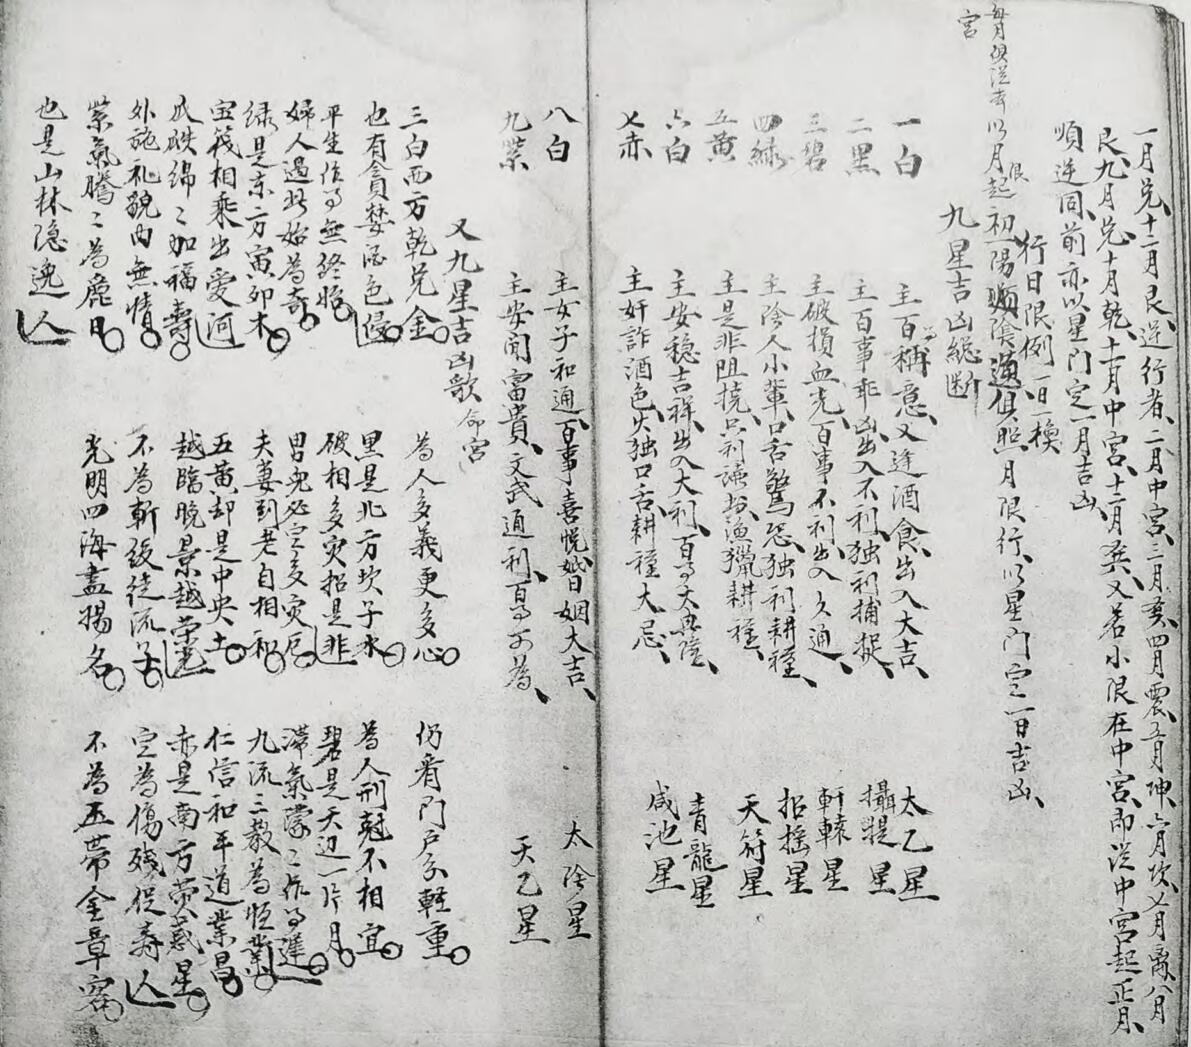 一月兑、十二月艮、逆行者、二月中宫、三月巽、四月震、五月坤、六月坎、七月離、八月
艮、九月兑、十月乾、十一月中宫、十二月巽、又若小限在中宫、即從中宫起正月、
順逆同、前亦以星門定一月吉凶、
行日限例 一日一換
每月俱從本以月限起初一陽順陰逆俱照月限行、以星門定一日吉凶、
宫
九星吉凶総断
一白 主百稱意、又逢酒食、出入大吉、 太乙星
二黑 主百事乖凶、出入不利、独利捕捉、 攝提星
三碧 主破損血光、百事不利、出入久通、 軒轅星
四綠 主陰人小輩、口舌驚恐、独利耕種、 招搖星
五黄 主是非阻撓、只利漁獵耕種、 天符星
六白 主安稳吉祥、出入大利、百事大興隆、 青龍星
七赤 主奸詐酒色、火独口舌、耕種大忌、 咸池星
八白 主女子和通、百事喜悦、婚姻大吉、 太陰星
九紫 主安閒富貴、文武通利、百事可為、 天乙星
又九星吉凶歌 命宫
三白西方乾兑金 為人多義更多心 仍看門戶分輕重
也有貪婪酒色侵 黑是北方坎子水 為人刑尅不相宜
平生作事無終始 破相多灾招是非 碧是天边一片月
婦人遇此始為奇 男兒必定多灾厄 滯氣濛々作事遲
绿是东方寅卯木 夫妻到老自相和 九流三教為恒業
宝筏相乘出愛河 五黄却是中央土 仁信和平道業昌
瓜瓞绵々加福壽 越臨晚景越荣光 赤是南方荧惑星
外施礼貌内無情 不為斬绞徒流子 定為傷残促寿人
紫氣騰々為麗日 光明四海盡揚名 不為玉帶金章客
也是山林隐逸人